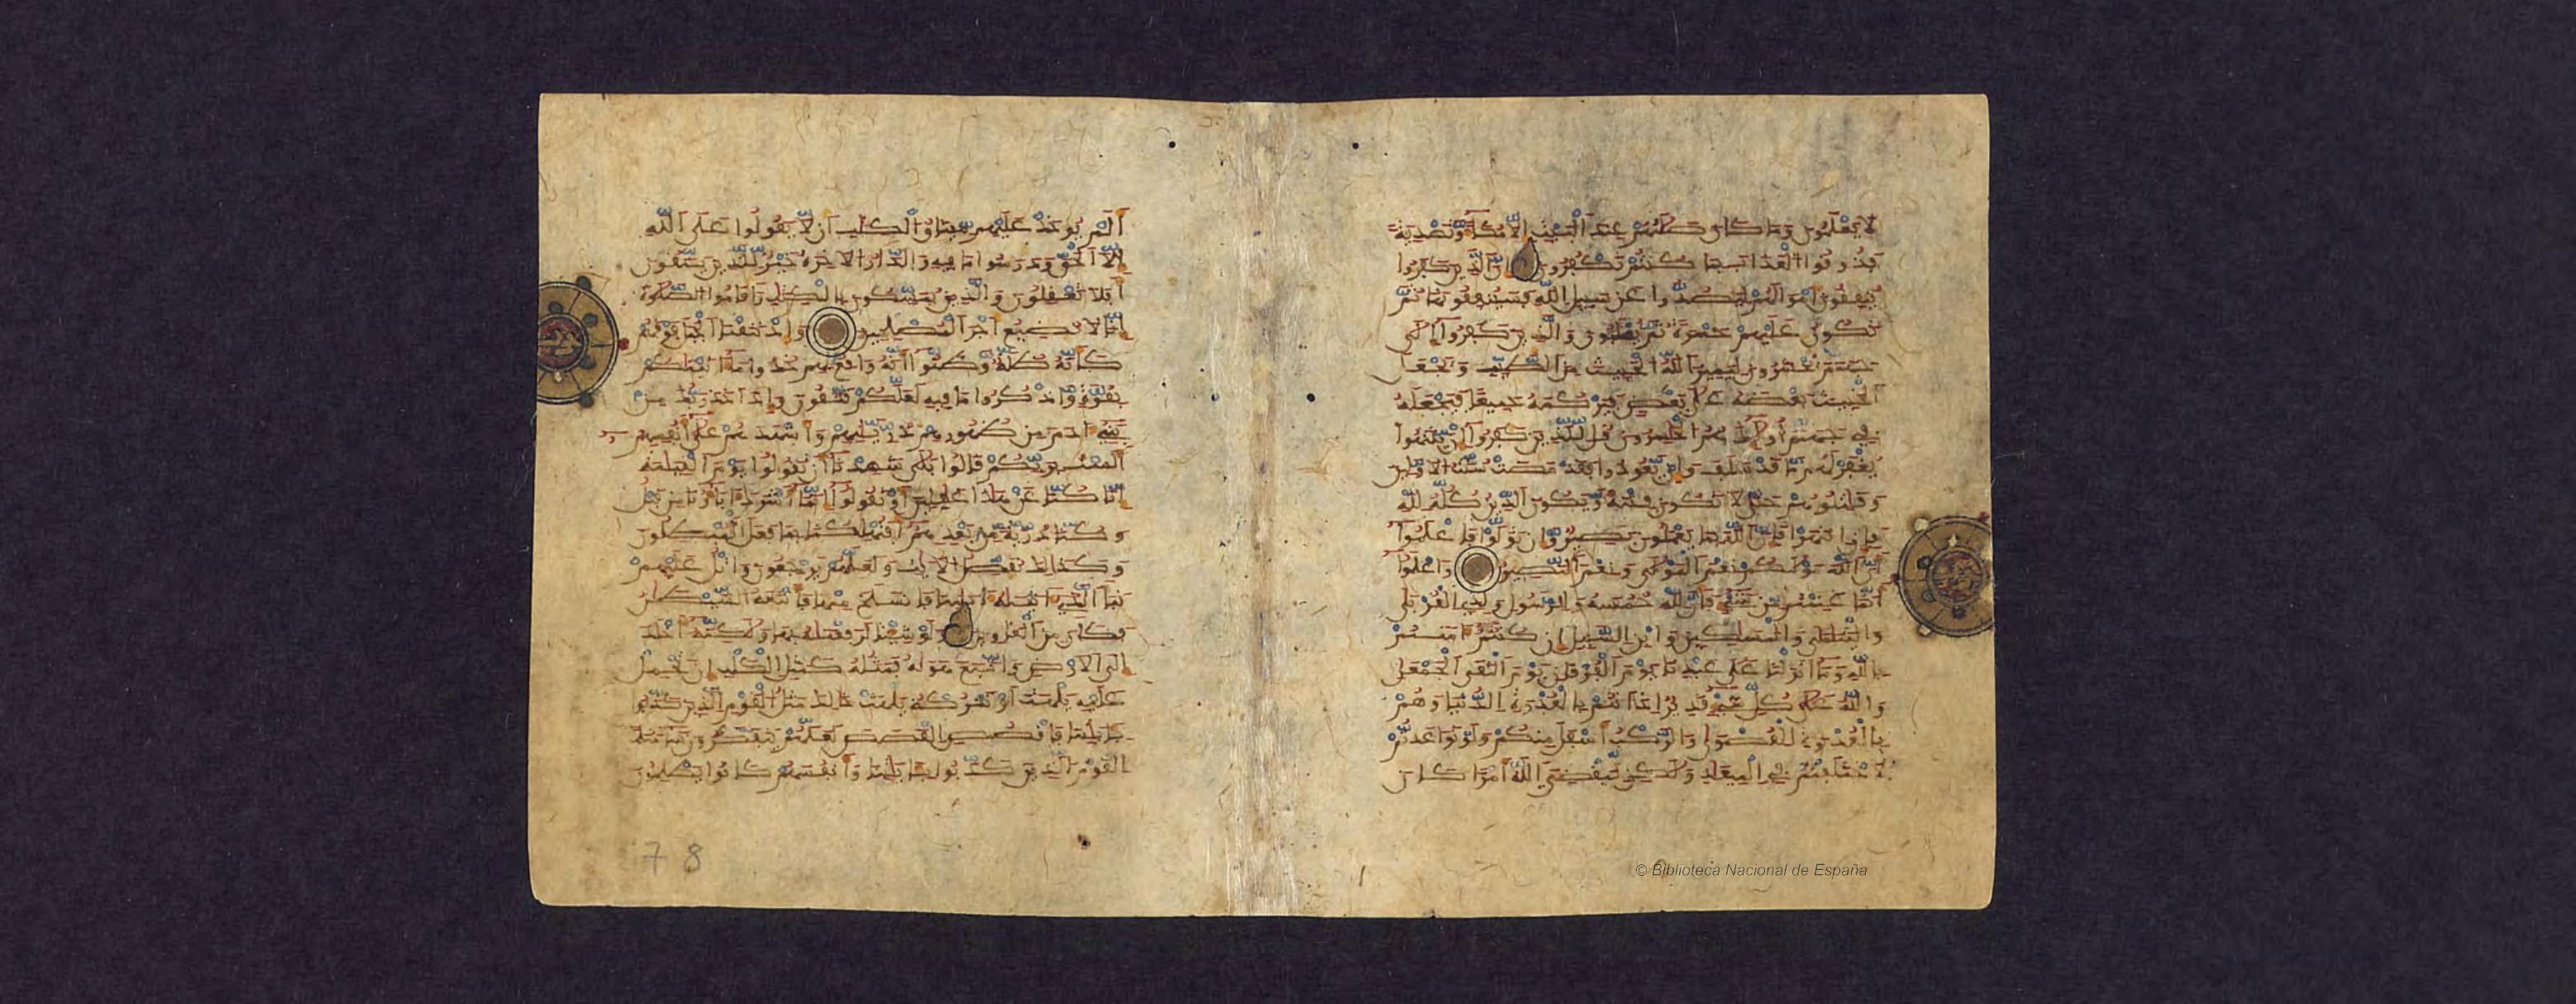 لا يعلمون وما كان صلاتهم عند البيت الا مكاء وتصدية
فذوقوا العذاب بما كنتم تكفرون ان الذين كفروا
ينفقون امولهم ليصدوا عن سبيل الله فسينفقونها ثم
تكون عليهم حسرة ثم يغلبون والذين كفروا الى
جهنم يحشرون ليميز الله الخبيث من الطيب ويجعل
الخبيث بعضه على بعض فيركمه جميعا فيجعله
في جهنم اولئك هم الخسرون قل للذين كفروا ان ينتهوا
يغفر لهم ما قد سلف وان يعودوا فقد مضت سنت الاولين
وقتلوهم حتى لا تكون فتنة ويكون الدين كله لله
فان انتهوا فان الله بما يعملون بصير وان تولوا فاعلموا
ان الله موليكم نعم المولى ونعم النصير واعلموا
انما غنمتم من شيء فان لله خمسه وللرسول ولذي القربى
واليتمى والمسكين وابن السبيل ان كنتم امنتم
بالله وما انزلنا على عبدنا يوم الفرقان يوم التقى الجمعن
والله على كل شيء قدير اذ انتم بالعدوة الدنيا وهم
بالعدوة القصوى والركب اسفل منكم ولو تواعدتم
لاختلفتم في الميعد ولكن ليقضي الله امرا كان
الم يوخذ عليهم ميثق الكتب ان لا يقولوا على الله
الا الحق ودرسوا ما فيه والدار الاخرة خير للذين يتقون
افلا تعقلون والذين يمسكون بالكتب واقاموا الصلوة
انا لا نضيع اجر المصلحين واذ نتقنا الجبل فوقهم
كانه ظلة وظنوا انه واقع بهم خذوا ما اتينكم
بقوة واذكروا ما فيه لعلكم تتقون واذ اخذ ربك من
بني ادم من ظهورهم ذريتهم واشهدهم على انفسهم
الست بربكم قالوا بلى شهدنا ان تقولوا يوم القيمة
انا كنا عن هذا غفلين او تقولوا انما اشرك اباونا من قبل
وكنا ذرية من بعدهم افتهلكنا بما فعل المبطلون
وكذلك نفصل الايت ولعلهم يرجعون واتل عليهم
نبا الذي اتينه ايتنا فانسلخ منها فاتبعه الشيطن
فكان من الغاوين ولو شئنا لرفعنه بها ولكنه اخلد
الى الارض واتبع هويه فمثله كمثل الكلب ان تحمل
عليه يلهث او تتركه يلهث ذلك مثل القوم الذين كذبوا
بايتنا فاقصص القصص لعلهم يتفكرون ساء مثلا
القوم الذين كذبوا بايتنا وانفسهم كانوا يظلمون
7 8
© Biblioteca Nacional de España